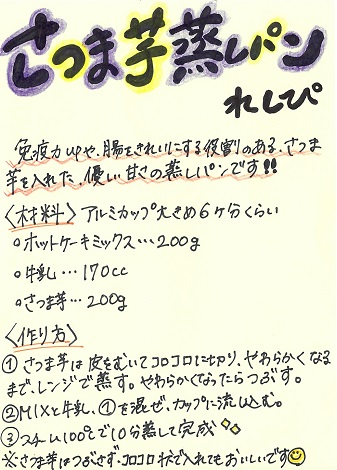 さつま芋蒸しパン
れしぴ
免疫力UPや、腸をきれいにする役割のある、さつま
芋を入れた、優しい甘さの蒸しパンです!!
〈材料〉アルミカップ大きめ6ケ分くらい
○ホットケーキミックス…200g
○牛乳…170cc
○さつま芋…200g
〈作り方〉
①さつま芋は皮をむいてコロコロに切り、やわらかくなる
まで、レンジで蒸す。やわらかくなったらつぶす。
②MIXと牛乳、①を混ぜ、カップに流し込む。
③スチーム100℃で10分蒸して完成
※さつま芋はつぶさず、コロコロ状で入れてもおいしいです